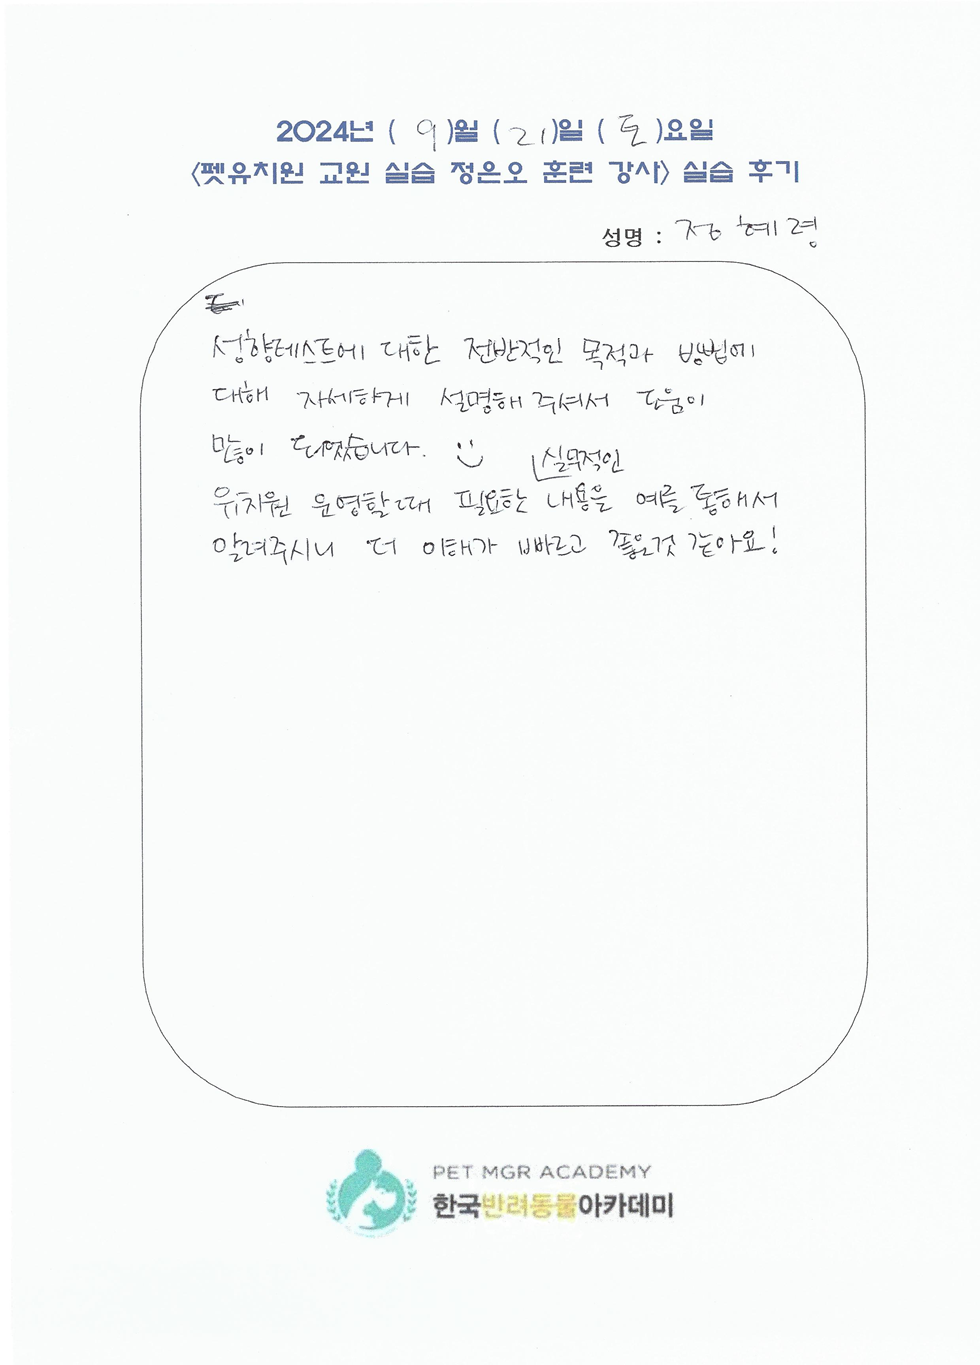 2024년 ( 9 )월 ( 21 )일 ( 토 )요일
<펫유치원 교원 실습 정은오 훈련 강사> 실습 후기
성명 : 정혜령
성향테스트에 대한 전반적인 목적과 방법에
대해 자세하게 설명해 주셔서 도움이
많이 되었습니다.
실무적인
유치원 운영할때 필요한 내용을 예를 통해서
알려주시니 더 이해가 빠르고 좋을것 같아요!
PET MGR ACADEMY
한국반려동물아카데미